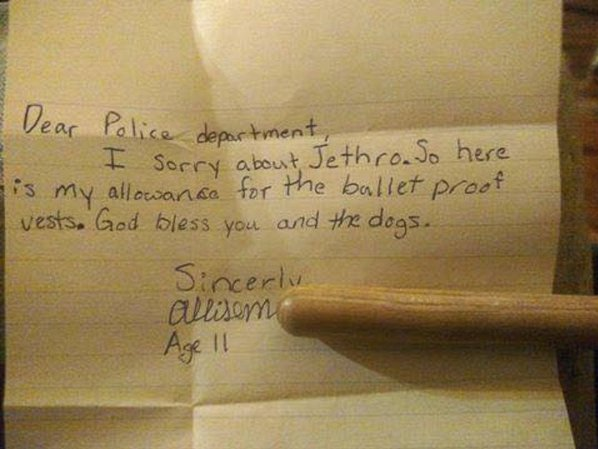 Dear Police department,
I sorry about Jethro. So here
is my allowance for the ballet proof
vests. God bless you and the dogs.
Sincerly
Age 11